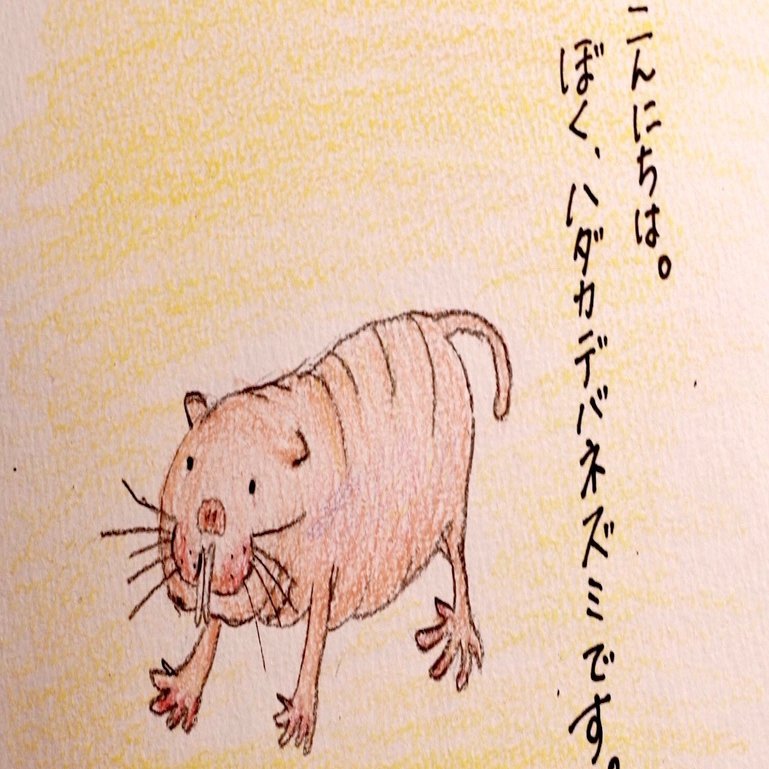 こんにちは。
ぼく、ハダカデバネズミです。